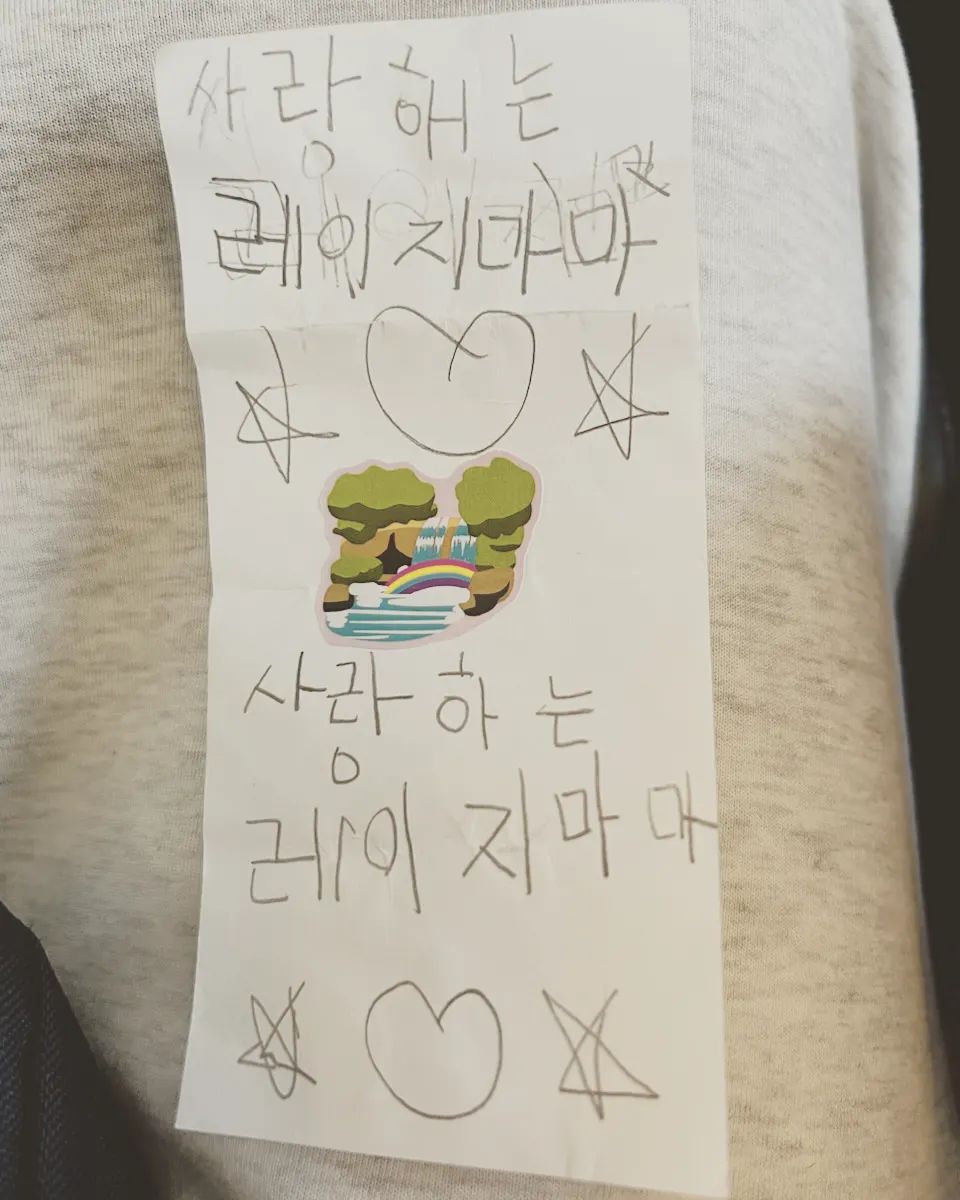 사랑해는
레이지마마
사랑하는
레이지마마